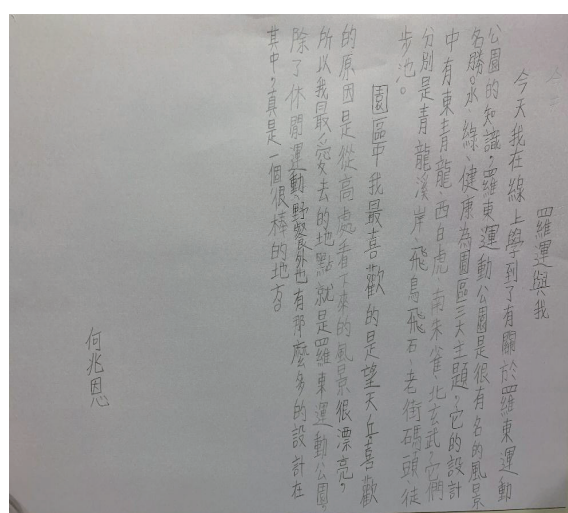 羅運與我
今天我在線上學到了有關於羅東運動
公園的知識,羅東運動公園是很有名的風景
名勝。水、綠、健康為園區三大主題,它的設計
中有東青龍、西白虎、南朱雀、北玄武,它們
分別是青龍溪岸、飛鳥飛石、老街碼頭、徒
步池。
園區中我最喜歡的是望天丘,喜歡
的原因是從高處看下來的風景很漂亮,
所以我最愛去的地點就是羅東運動公園,
除了休閒運動、野餐外也有那麼多的設計在
其中,真是一個很棒的地方。
何兆恩